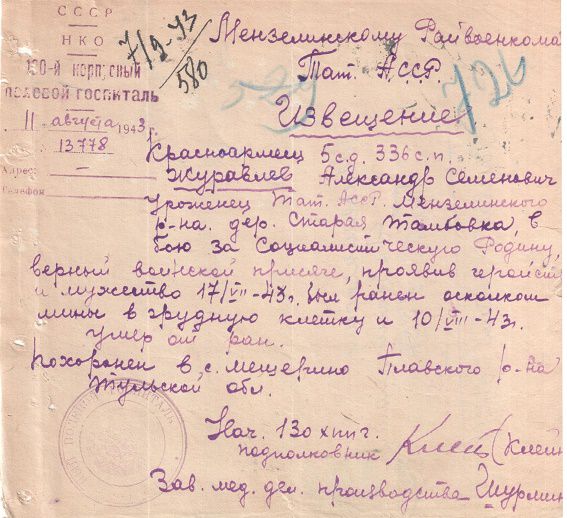 СССР
НКО
130-й корпусный
полевой госпиталь
11 августа 1943 г.
13778
Адрес: —
Телефон
7/9-43
580
599
726
Мензелинскому Райвоенкома
Тат. АССР.
Извещение
Красноармеец 5 с.д. 336 с.п.
Журавлев Александр Семенович
Уроженец Тат. АССР Мензелинского
р-на. дер. Старая Тамбовка, в
бою за Социалистическую Родину,
верный воинской присяге, проявив геройст
и мужество 17/VII-43г. был ранен осколком
мины в грудную клетку и 10/VIII-43г.
умер от ран.
Похоронен в с. Мещерино Плавского р-на
Тульской обл.
Нач. 130 хппг.
подполковник (Клейн
Зав. мед. дел. производства Шурмин